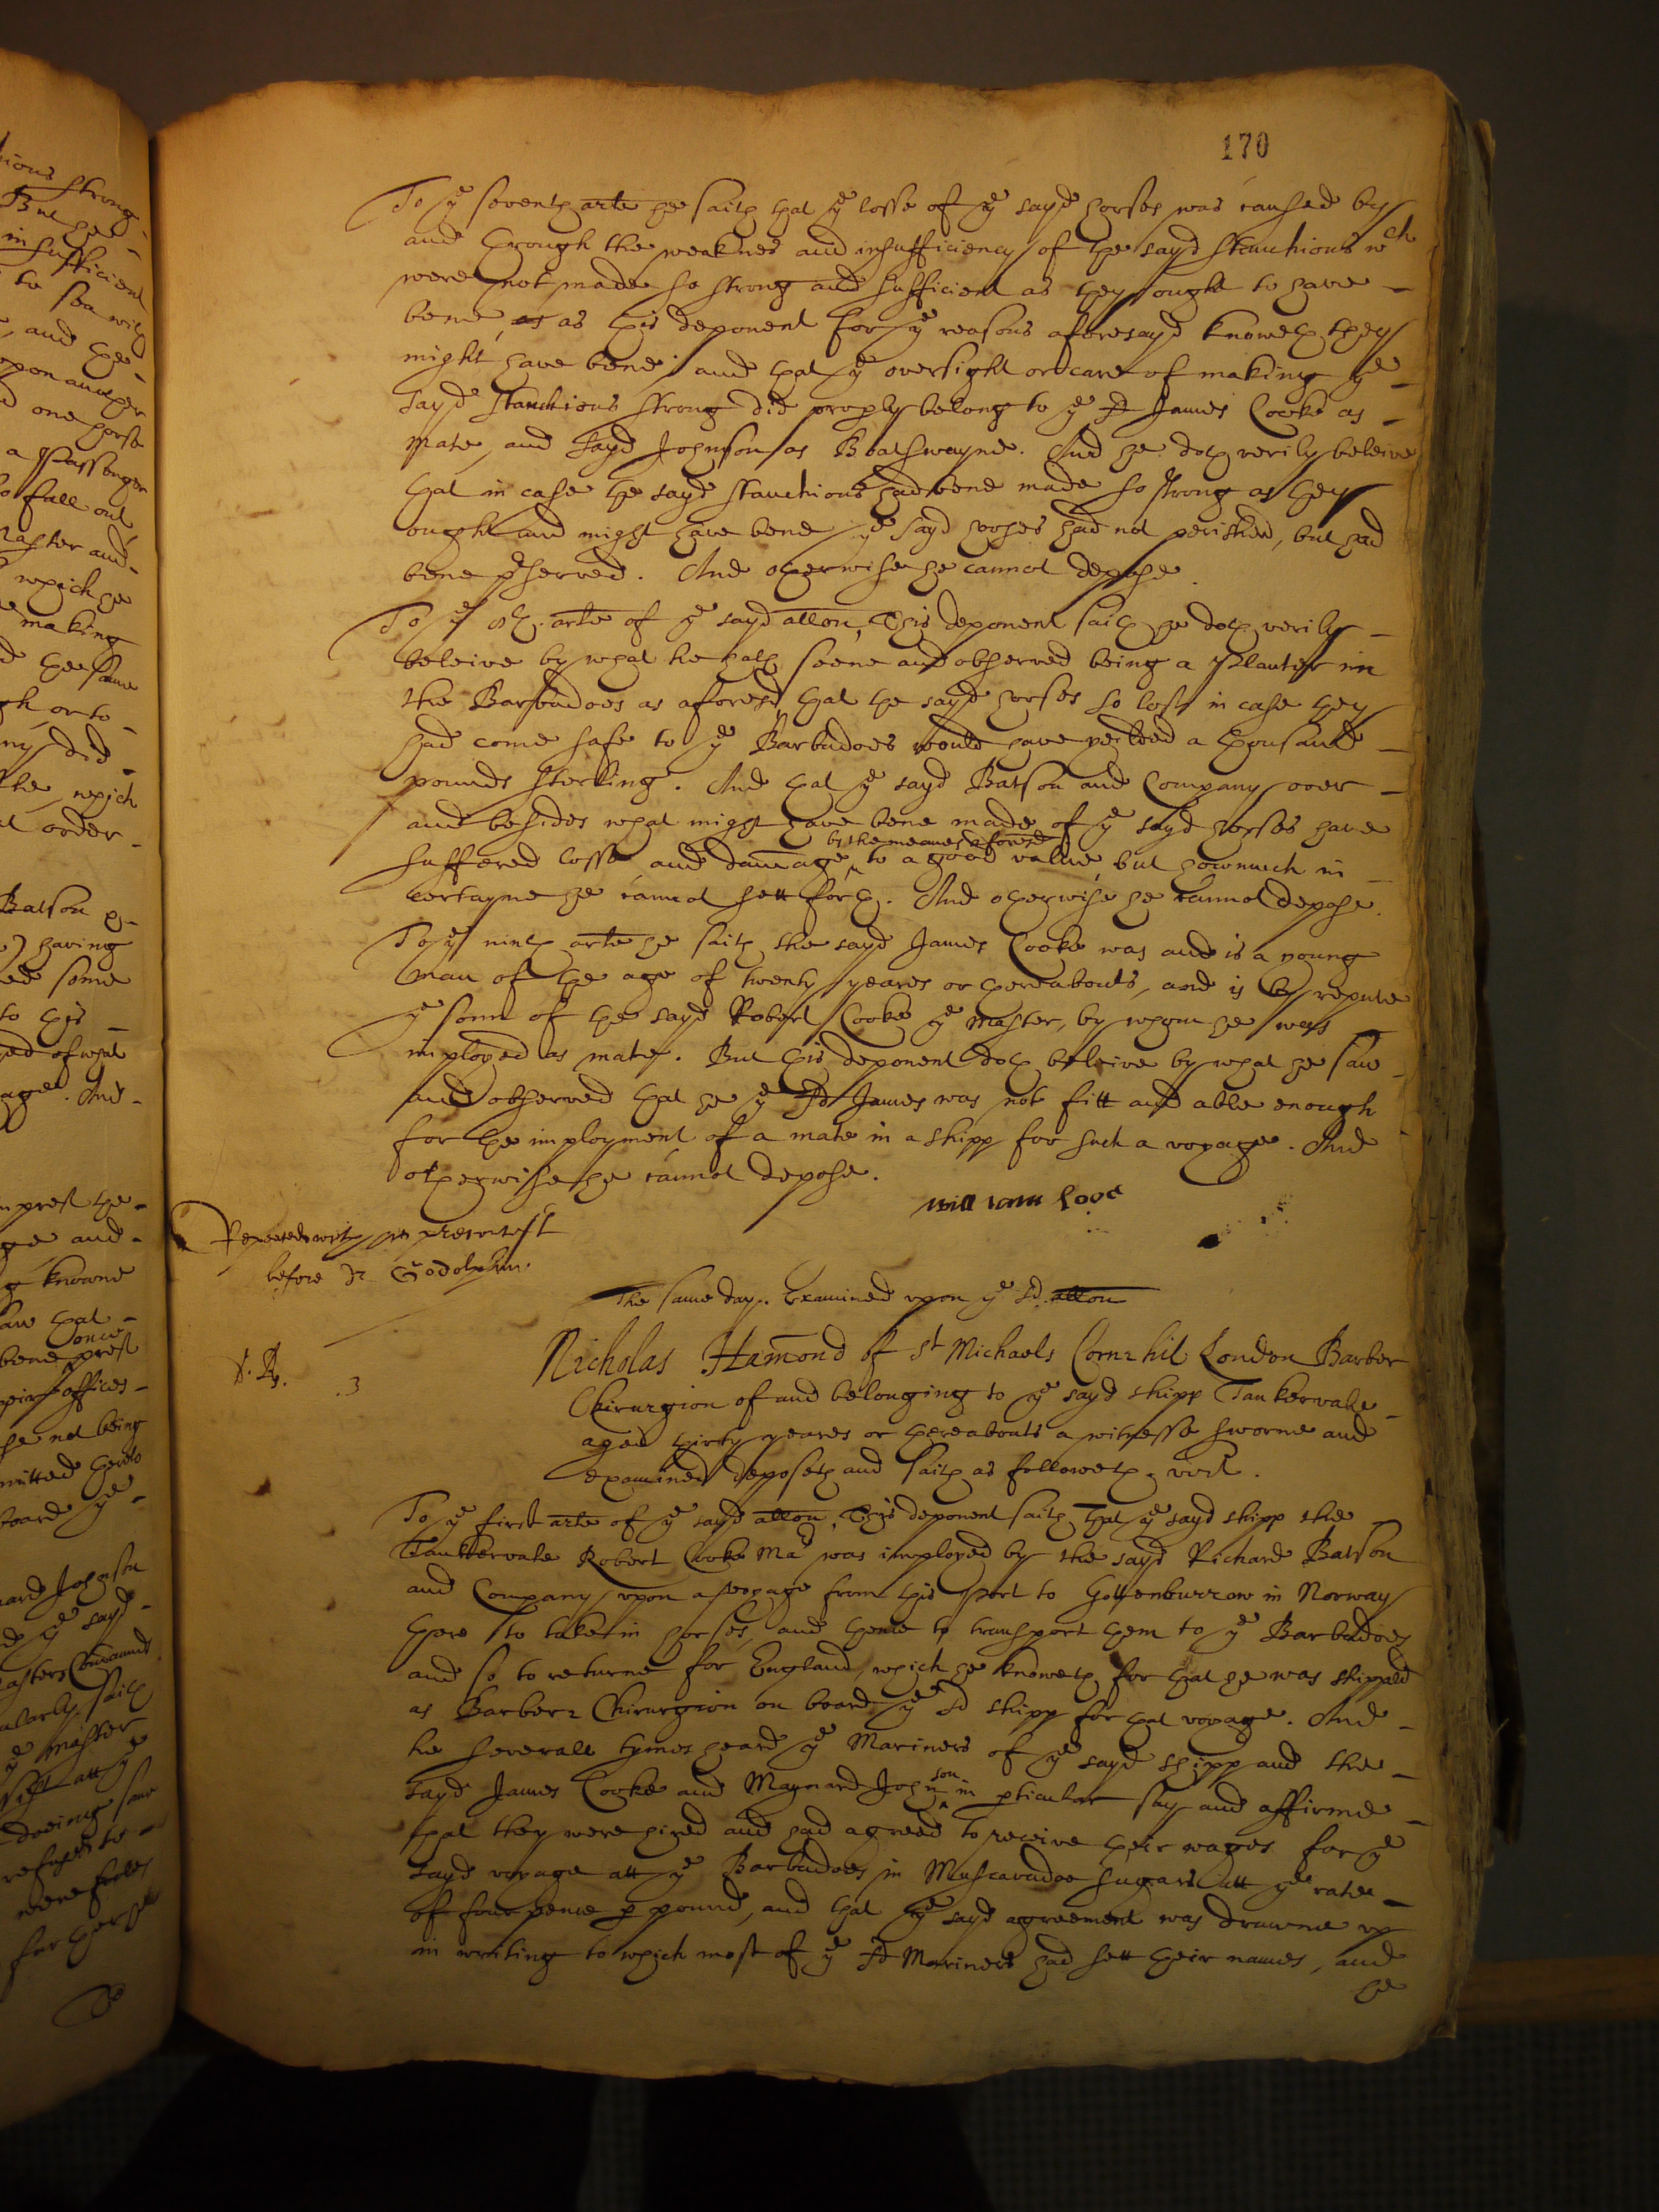 170
To ye seventh arte he saith that ye losse of ye sayd horses was caused by
and through the weaknes and insufficiency of the sayd stanchions wch
were not made so strong and sufficient as they ought to have
bene, as as this deponent for ye reasons aforesayd knoweth they
might have bene, and that ye oversight or care of making ye
sayd stanchions strong did properly belong to ye sd James Cooke as
mate, and sayd Johnson as Boatswayne. And he doth verily beleive
that in case the sayd stanchions had bene made so strong as they
ought and might have bene ye sayd horses had not perished, but had
bene pserved. And otherwise he cannot depose.
To ye 8th. arte of ye sayd allon, This deponent saith he doth verily
beleive by what he hath seene and observed being a Planter in
the Barbadoes as aforesd, that the sayd horses so lost in case they
had come safe to ye Barbadoes would have yeilded a thousand
pounds sterling. And that ye sayd Batson and Company over
and besides what might have bene made of ye sayd horses have
by the meanes aforesd
suffered losse and damage, to a good value, but howmuch in
certayne he cannot sett forth. And otherwise he cannot depose.
To ye ninth arte he saith the sayd James Cooke was and is a young
man of the age of twenty yeares or thereabouts, and is by repute
ye sonn of the sayd Robert Cooke ye master, by whom he was
imployed as mate. But this deponent doth beleive by what he saw
and observed that he ye sd James was not fitt and able enough
for the imployment of a mate in a shipp for such a voyage. And
otherwise he cannot depose.
William Love
Repeated with his precontest
before Dr Godolphin.
The same day. Examined upon ye sd. allon
Nicholas Hamond of St Michaels Cornhil London Barber
3
Chirurgion of and belonging to ye sayd shipp Tankervale
aged thirty yeares or thereabouts a witnesse sworne and
examined deposeth and saith as followeth. vizt.
To ye first arte of ye sayd allon, This deponent saith, that ye sayd shipp the
Tankervale Robert Cooke Mar was imployed by the sayd Richard Batson
and Company upon a voyage from this port to Gottenburrow in Norway
there to take in horses, and thence to transport them to ye Barbadoes
and so to returne for England, which he knoweth for that he was shipped
as Barber Chirurgion on board ye sd shipp for that voyage. And
he severall tymes heard ye Mariners of ye sayd shipp and the
sayd James Cooke and Maynard Johnson in pticular say and affirme
that they were hired and had agreed to receive their wages for ye
sayd voyage att ye Barbadoes in Muscavadoe sugars att ye rate
of four pence p pound, and that ye sayd agreement was drawne up
in writing to which most of ye sd Mariners had sett their names, and
he